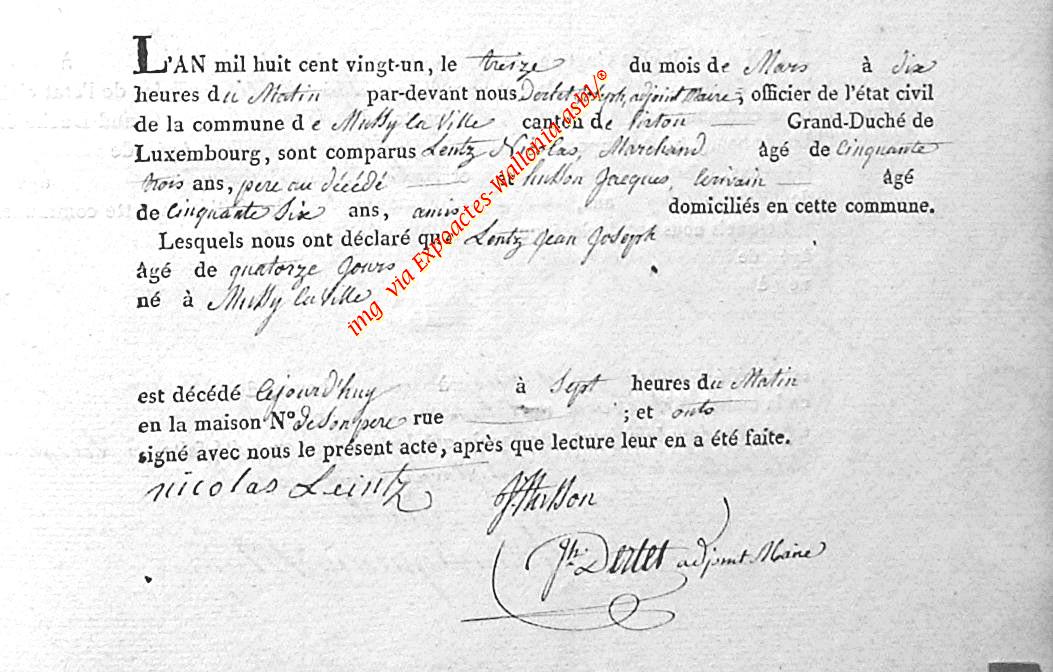 L'AN mil huit cent vingt-un, le treize du mois de Mars à dix
heures du Matin par-devant nous Dertet Joseph, adjoint Maire, officier de l'état civil
de la commune de Mussy la Ville canton de Virton Grand-Duché de
Luxembourg, sont comparus Lentz Nicolas, Marchand âgé de Cinquante
trois ans, pere au décédé et husson Jacques, Ecrivain âgé
de Cinquante Six ans, amis domiciliés en cette commune.
Lesquels nous ont déclaré que Lentz Jean Joseph
âgé de quatorze Jours
né à Mussy la Ville
img via Expoactes-Wallonia-asbl/®
est décédé Cejourd'huy à Sept heures du Matin
en la maison N° de Son pere rue ; et onts
signé avec nous le présent acte, après que lecture leur en a été faite.
nicolas Leintz J. husson
Jh. Dertet adjoint Maire